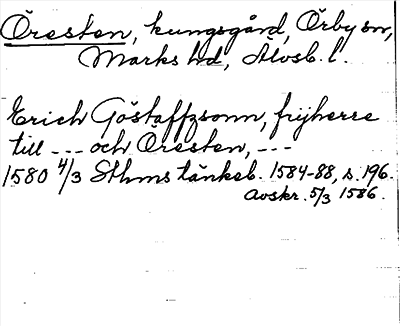 Öresten, kungsgård, Örby sn,
Marks hd, Älvsb. l.
Erich Göstaffzsonn, frijherre
till --- och Oresten, ---
1580 4/3 Sthms tänkeb. 1584-88, s. 196.
Avskr. 5/3 1586.